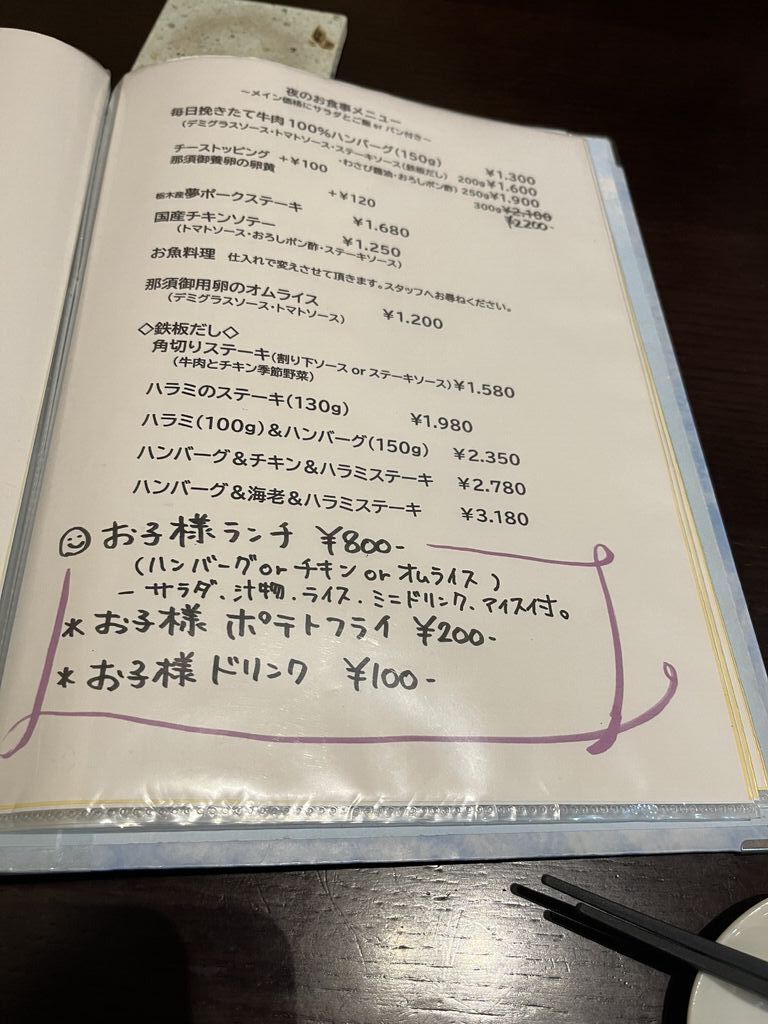 夜のお食事メニュー
～メイン価格にサラダとご飯 or パン付き～
毎日挽きたて牛肉 100%ハンバーグ(150g) ¥1.300
(デミグラスソース・トマトソース・ステーキソース(鉄板だし) 200g¥1.600
・わさび醤油・おろしポン酢) 250g¥1.900
300g¥2.100
¥2200-
チーストッピング +¥100
那須御養卵の卵黄 +¥120
栃木産夢ポークステーキ ¥1.680
国産チキンソテー ¥1.250
(トマトソース・おろしポン酢・ステーキソース)
お魚料理 仕入れで変えさせて頂きます。スタッフへお尋ねください。
那須御用卵のオムライス ¥1.200
(デミグラスソース・トマトソース)
◇鉄板だし◇
角切りステーキ(割り下ソース or ステーキソース)¥1.580
(牛肉とチキン季節野菜)
ハラミのステーキ(130g) ¥1.980
ハラミ(100g)&ハンバーグ(150g) ¥2.350
ハンバーグ&チキン&ハラミステーキ ¥2.780
ハンバーグ&海老&ハラミステーキ ¥3.180
お子様ランチ ¥800-
(ハンバーグ or チキン or オムライス)
- サラダ、汁物、ライス、ミニドリンク、アイス付。
* お子様 ポテトフライ ¥200-
* お子様 ドリンク ¥100-